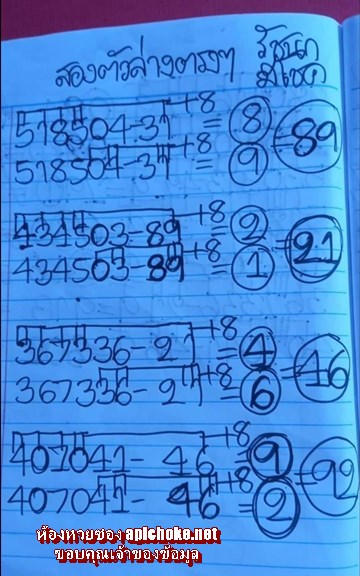 สองตัวล่างตรงๆ
มีโชค
518504-31+8=8
518504-31+8=9
=89
434503-89+8=2
434503-89+8=1
=21
367336-21+8=4
367336-21+8=6
=46
407041-46+8=9
407041-46+8=2
=92
ห้องหวยซอง apichoke.net
ขอบคุณเจ้าของข้อมูล